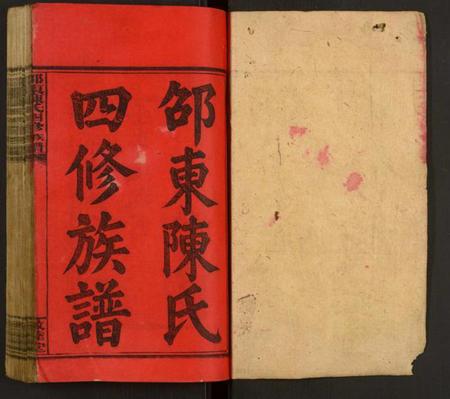 邵東陳氏
四修族譜